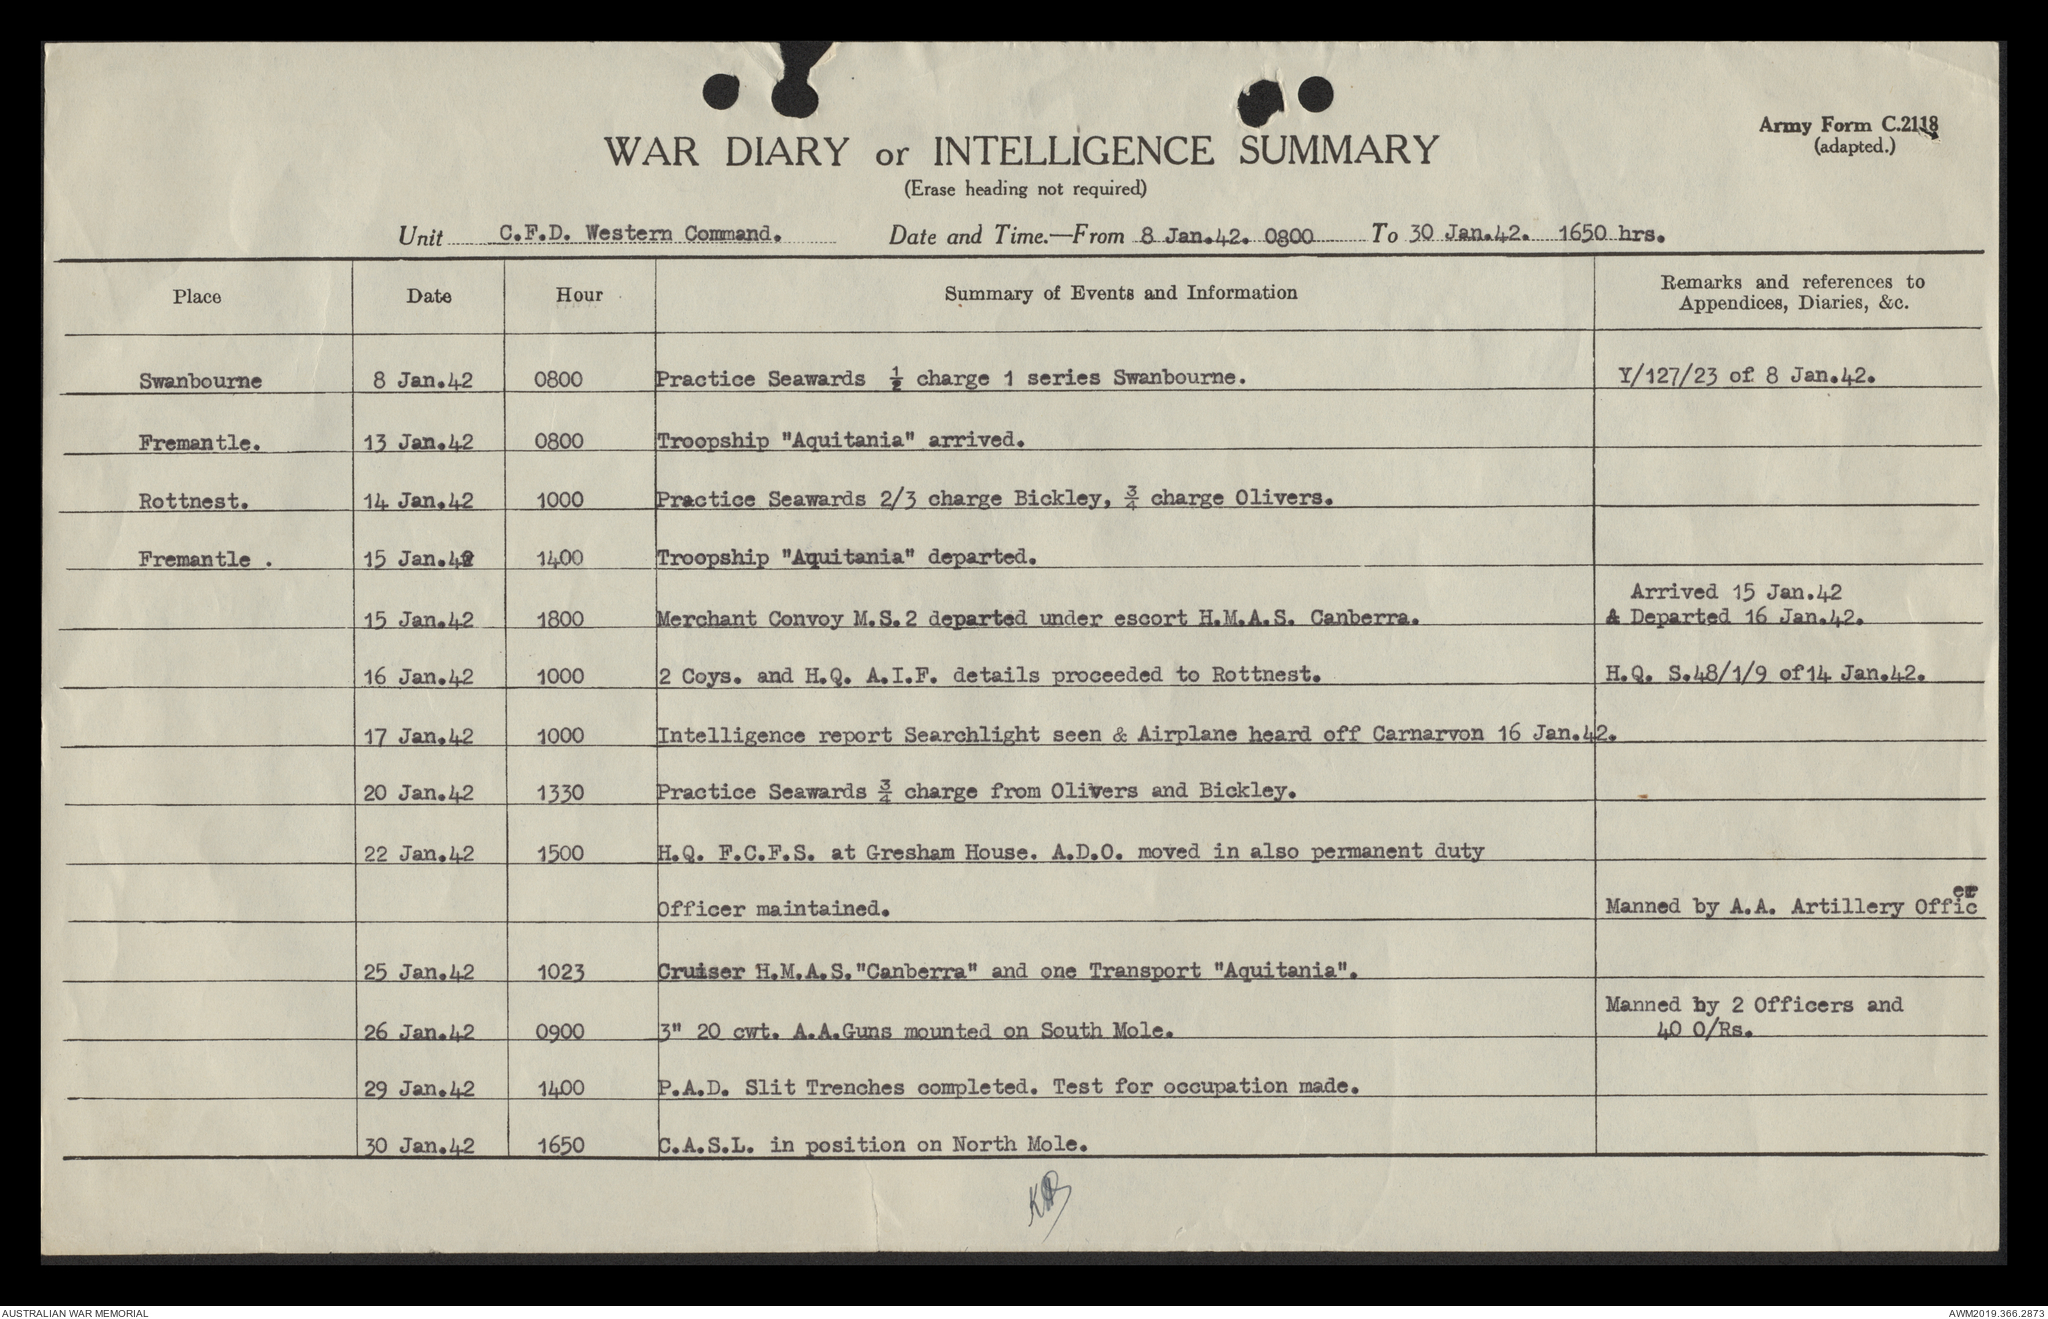 Army Form C.2118
(adapted.)
WAR DIARY or INTELLIGENCE SUMMARY
(Erase heading not required)
Unit C.F.D. Western Command. Date and Time.—From 8 Jan.42. 0800 To 30 Jan.42. 1650 hrs.
Place Date Hour Summary of Events and Information Remarks and references to
Appendices, Diaries, &c.
Swanbourne 8 Jan.42 0800 Practice Seawards ½ charge 1 series Swanbourne. Y/127/23 of 8 Jan.42.
Fremantle. 13 Jan.42 0800 Troopship "Aquitania" arrived.
Rottnest. 14 Jan.42 1000 Practice Seawards 2/3 charge Bickley, ¾ charge Olivers.
Fremantle . 15 Jan.42 1400 Troopship "Aquitania" departed.
Arrived 15 Jan.42
15 Jan.42 1800 Merchant Convoy M.S.2 departed under escort H.M.A.S. Canberra. & Departed 16 Jan.42.
16 Jan.42 1000 2 Coys. and H.Q. A.I.F. details proceeded to Rottnest. H.Q. S.48/1/9 of 14 Jan.42.
17 Jan.42 1000 Intelligence report Searchlight seen & Airplane heard off Carnarvon 16 Jan.42.
20 Jan.42 1330 Practice Seawards ¾ charge from Olivers and Bickley.
22 Jan.42 1500 H.Q. F.C.F.S. at Gresham House. A.D.O. moved in also permanent duty
Officer maintained. Manned by A.A. Artillery Officer
25 Jan.42 1023 Cruiser H.M.A.S."Canberra" and one Transport "Aquitania".
Manned by 2 Officers and
26 Jan.42 0900 3" 20 cwt. A.A.Guns mounted on South Mole. 40 O/Rs.
29 Jan.42 1400 P.A.D. Slit Trenches completed. Test for occupation made.
30 Jan.42 1650 C.A.S.L. in position on North Mole.
AUSTRALIAN WAR MEMORIAL AWM2019.366.2873